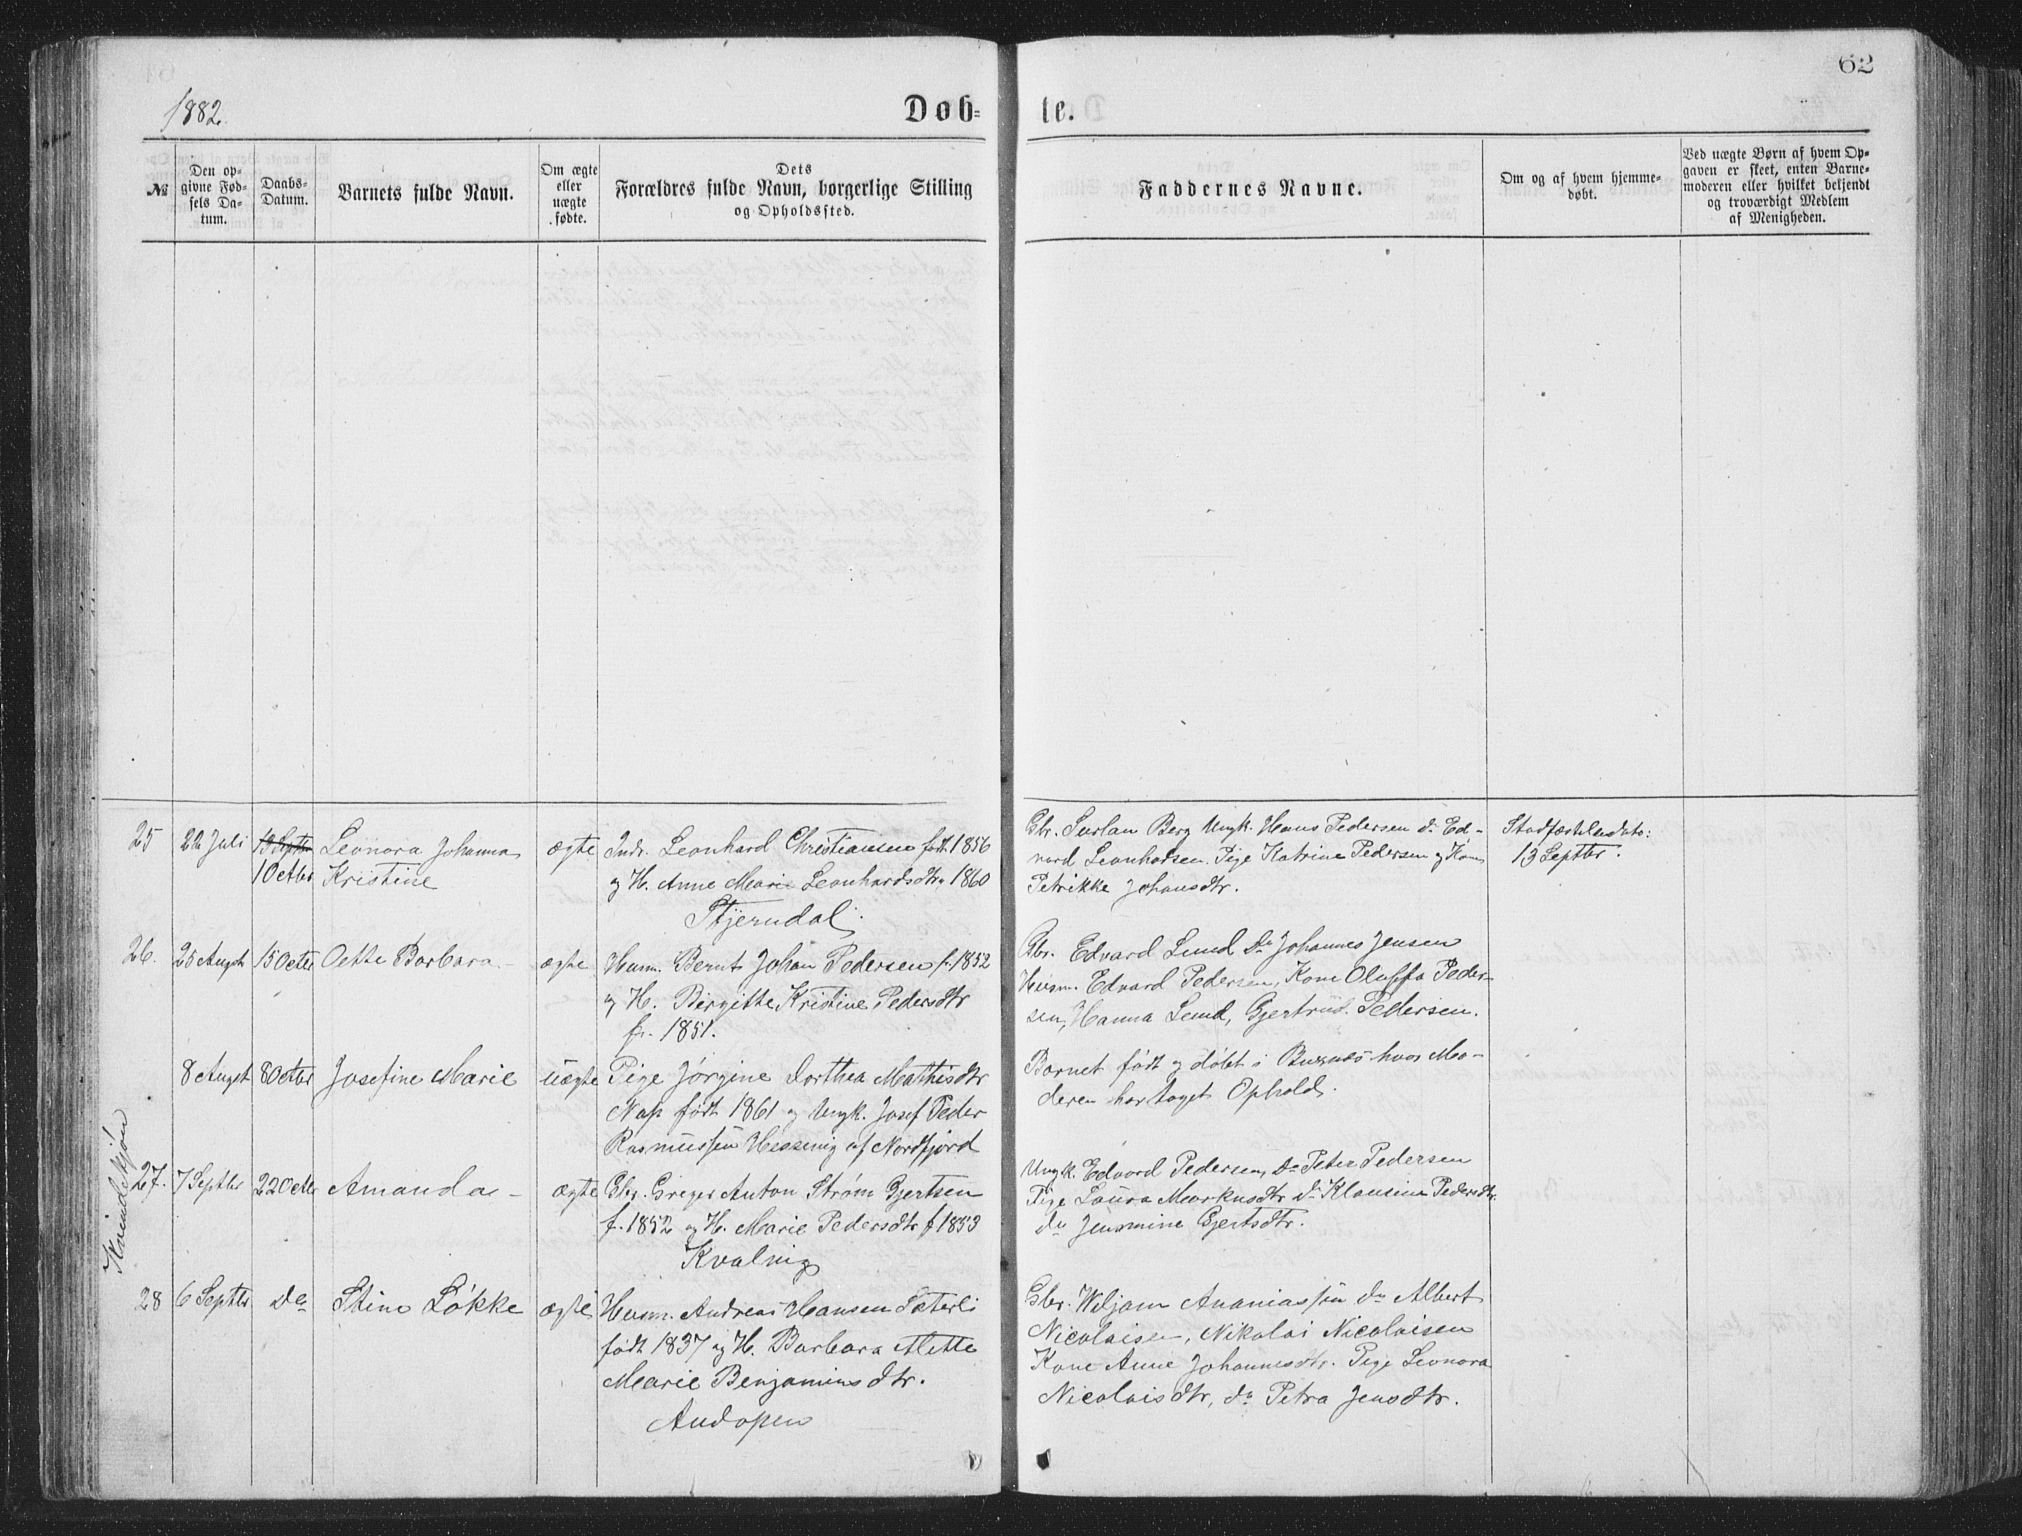 1882.
Døb-
te.
62
№
Den op-
givne Fød-
sels Da-
tum.
Daabs-
Datum.
Barnets fulde Navn.
Om ægte
eller
uægte
fødte.
Dets
Forældres fulde Navn, borgerlige Stilling
og Opholdssted.
Faddernes Navne.
Om og af hvem hjemme-
døbt.
Ved uægte Børn af hvem Op-
gaven er skeet, enten Barne-
moderen eller hvilket bekjendt
og troværdigt Medlem
af Menigheden.
25
22 Juli
1 Octbr
Leonora Johanna
Kristine
ægte
Indr. Leonhard Christiansen født 1856
og H. Anne Marie Leonhardsdtr 1860
Stjerndal.
Gbr. Berg Ungk. Hans Pedersen do Ed-
vard Leonhardsen. Pige Katrine Pedersen og Kone
Petrikke Johansdtr.
13 Septbr.
26.
25 Augst
15 Octbr
Oette Barbara.
ægte
Husm. Bernt Johan Pedersen f. 1852
og H. Birgitte Kristine Pedersdtr
f. 1851.
Gbr. Edvard Lund Do Johannes Jensen
Husm. Edvard Pedersen, Kone Oluffa Peder-
sen, Hanna Lund, Gjertrud Pedersen.
8 Augst
8 Octbr
Josefine Marie
uægte
Pige Jørgine Dorthea Mathisdtr
Nap født 1861 og Ungk. Josef Peder
Rasmussen af Nordfjord
Barnet født og døbt i Buxnæs hvor Mo-
deren har taget Ophold.
Kvindekjøn
27.
7 Septbr
22 Octbr
Amanda -
ægte
Gbr. Greger Anton Strøm Gjertsen
f. 1852 og H. Marie Pedersdtr f 1853
Kvalnig
Ungk. Edvard Pedersen, Do Peter Pedersen
Pige Laura Markusdtr do Klausine Pedersdtr.
do Jensmine Gjertsdtr.
28
6 Septbr
Do
Stine Løkke
ægte
Husm. Andreas Hansen Sæterli
født 1837 og H. Barbara Alette
Marie Benjaminsdtr.
Andopen
Gbr. Wiljam Ananiassen do Albert
Nicolaisen, Nikolai Nicolaisen
Kone Anne Johannesdtr. Pige Leonora
Nicolaisdtr, do Petra Jensdtr.